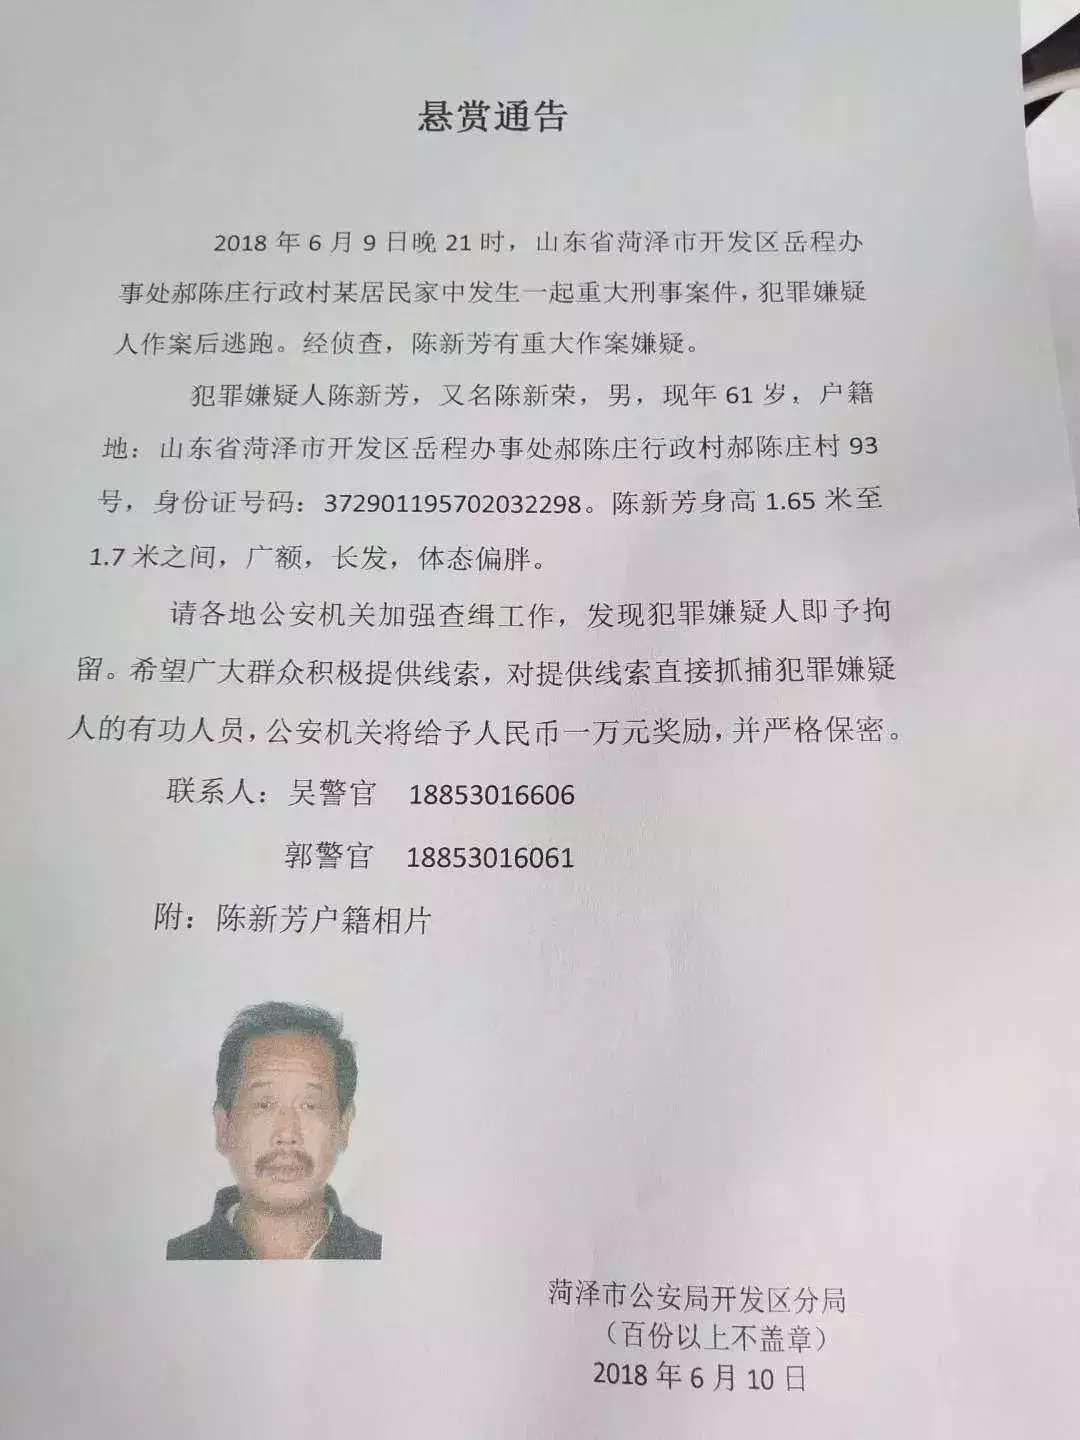 悬赏通告
2018 年 6 月 9 日晚 21 时，山东省菏泽市开发区岳程办
事处郝陈庄行政村某居民家中发生一起重大刑事案件，犯罪嫌疑
人作案后逃跑。经侦查，陈新芳有重大作案嫌疑。
犯罪嫌疑人陈新芳，又名陈新荣，男，现年 61 岁，户籍
地：山东省菏泽市开发区岳程办事处郝陈庄行政村郝陈庄村 93
号，身份证号码：372901195702032298。陈新芳身高 1.65 米至
1.7 米之间，广额，长发，体态偏胖。
请各地公安机关加强查缉工作，发现犯罪嫌疑人即予拘
留。希望广大群众积极提供线索，对提供线索直接抓捕犯罪嫌疑
人的有功人员，公安机关将给予人民币一万元奖励，并严格保密。
联系人：吴警官 18853016606
郭警官 18853016061
附：陈新芳户籍相片
菏泽市公安局开发区分局
（百份以上不盖章）
2018 年 6 月 10 日